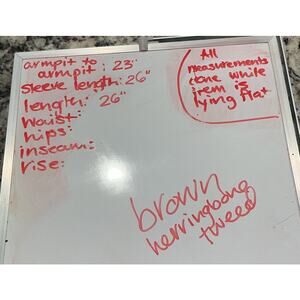 armpit to
armpit: 23"
sleeve length: 26"
length: 26"
waist:
hips:
inseam:
rise:
All
measurements
done while
item is
lying flat
brown
herringbone
tweed